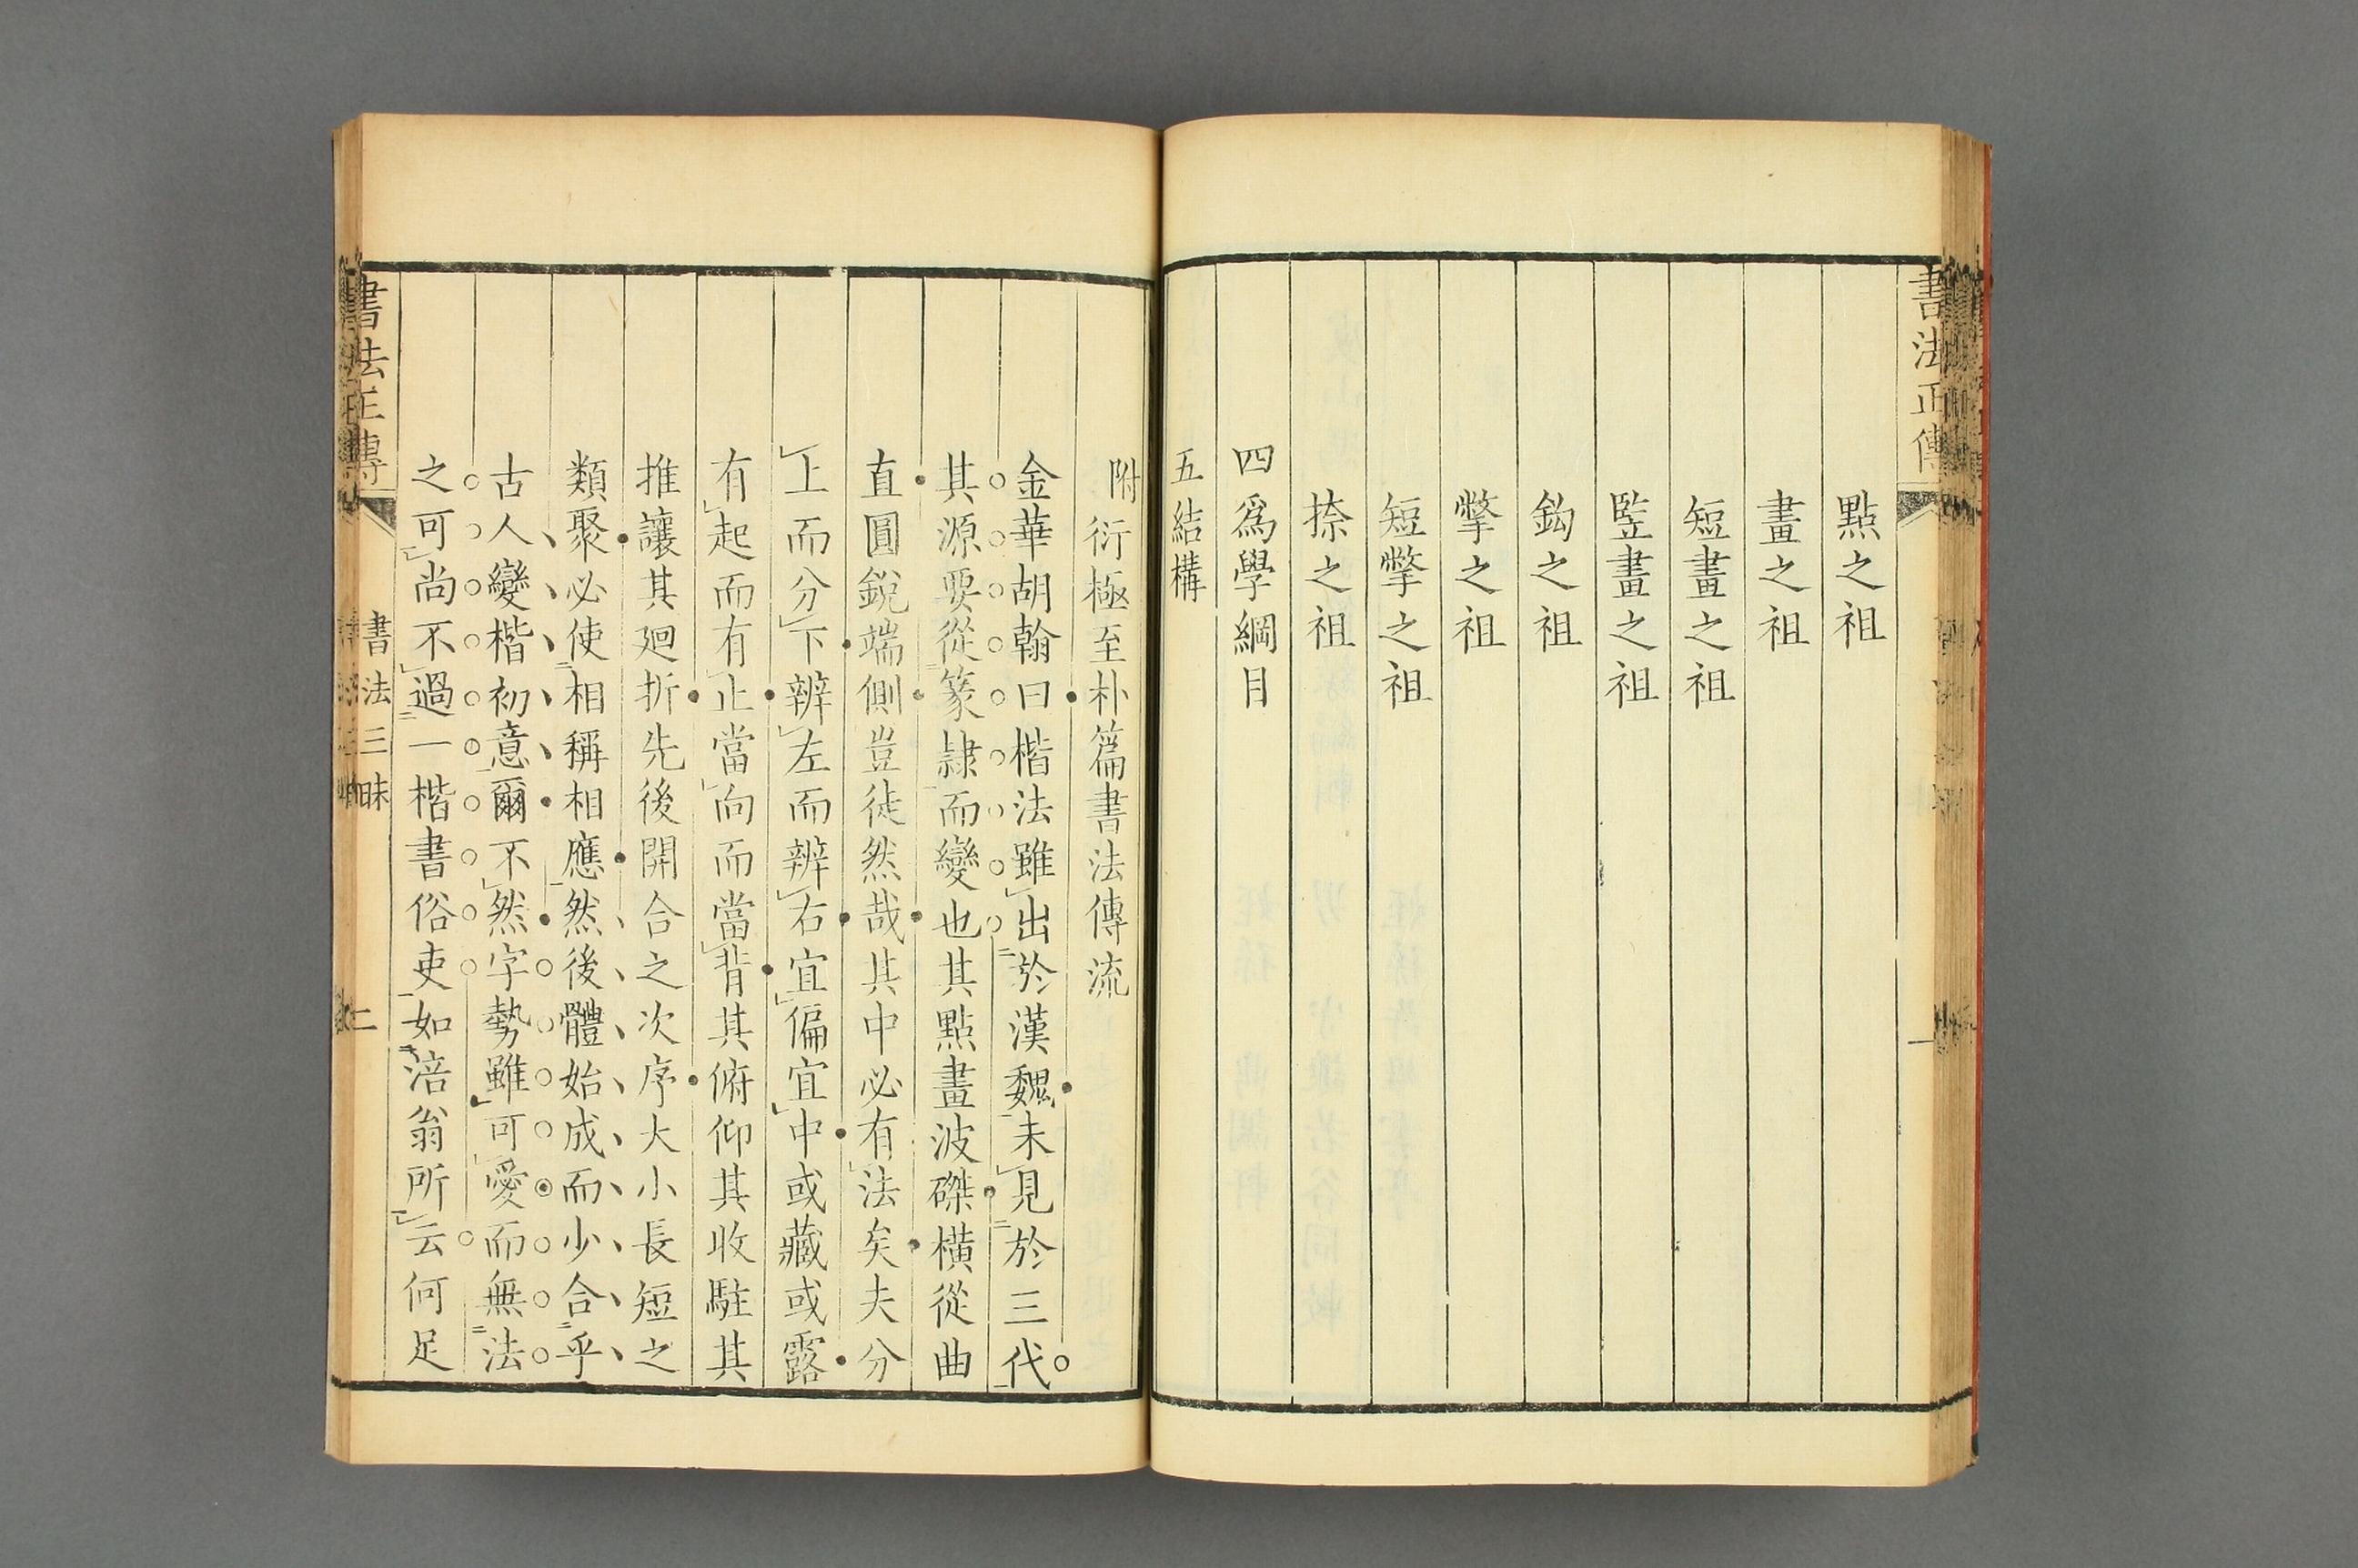 書法正傳
一
點之祖
畫之祖
短畫之祖
竪畫之祖
鈎之祖
撆之祖
短撆之祖
捺之祖
四爲學綱目
五結構
附衍極至朴篇書法傳流
金華胡翰曰楷法雖出於漢魏未見於三代
其源要從篆隷而變也其點畫波磔橫從曲
直圓銳端側豈徒然哉其中必有法矣夫分
上而分下辨左而辨右宜偏宜中或藏或露
有起而有止當向而當背其俯仰其收駐其
推讓其廻折先後開合之次序大小長短之
類聚必使相稱相應然後體始成而少合乎
古人變楷初意爾不然字勢雖可愛而無法
之可尚不過一楷書俗吏如涪翁所云何足
書法正傳
書法三昧
二